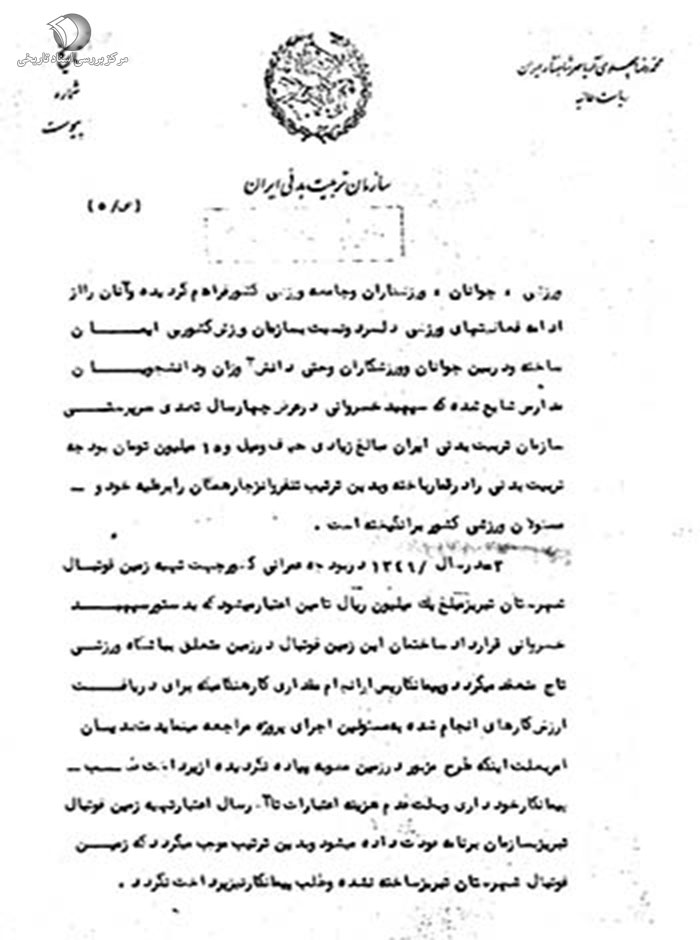 مرکز بررسی اسناد تاریخی
شماره
پیوست
ریاست عالیه
سازمان تربیت بدنی ایران
ورزشی ، جوانان ، ورزشکاران وجامعه ورزشی کشورفراهم گردیده وآنان رااز
ادامه فعالیتهای ورزشی دلسرد ونسبت بسازمان ورزش کشور بی ایمـــان
ساخته ودربین جوانان وورزشکاران وحتی دانش آموزان ودانشجویـــان
مدارس شایع شده که سپهبد خسروانی درعرض چهارسال تصدی سرپرستـی
سازمان تربیت بدنی ایران مبالغ زیادی حیف ومیل و ۱۵ میلیون تومان بودجه
تربیت بدنی رادرقمارباخته وبدین ترتیب تنفروانزجارهمگان رابرعلیه خود و ـ
مسئولان ورزشی کشور برانگیخته است .
۳ـدرسال /۱۳۴۶ دربودجه عمرانی کشورجهت تهیه زمین فوتبال
شهرستان تبریزمبلغ یک میلیون ریال تامین اعتبارمیشود که بدستورسپهبـــد
خسروانی قرارداد ساختمان این زمین فوتبال درزمین متعلق بباشگاه ورزشـی
تاج منعقد میگردد وپیمانکارپس ازانجام مقداری کارهنگامیکه برای دریافـــت
ارزش کارهای انجام شده بمسئولین اجرای پروژه مراجعه مینماید متصدیـان
امربعلت اینکه طرح مزبور درزمین مصوبه پیاده نگردیده ازپرداخت طلـــب ـ
پیمانکارخودداری وبعلت عدم هزینه اعتبارات تاآخرسال اعتبارتهیه زمین فوتبال
تبریزبسازمان برنامه عودت داده میشود وبدین ترتیب موجب میگردد که زمیـــن
فوتبال شهرستان تبریزساخته نشده وطلب پیمانکارنیزپرداخت نگردد .